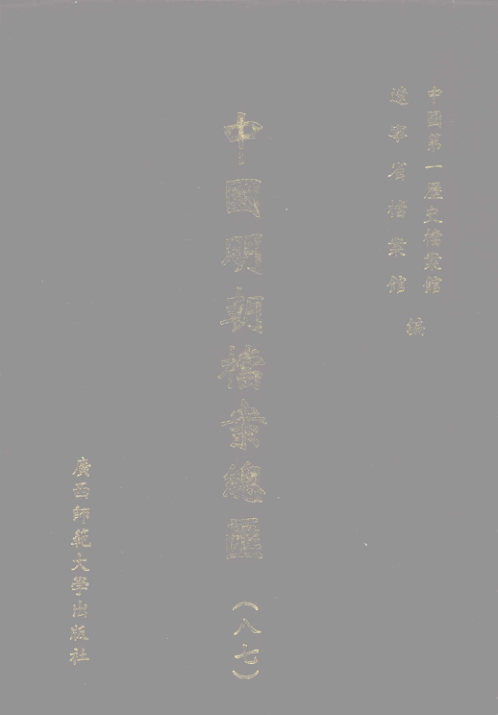 中國第一歷史檔案館
遼寧省檔案館
編
中國明朝檔案總匯
（八七）
廣西師範大學出版社